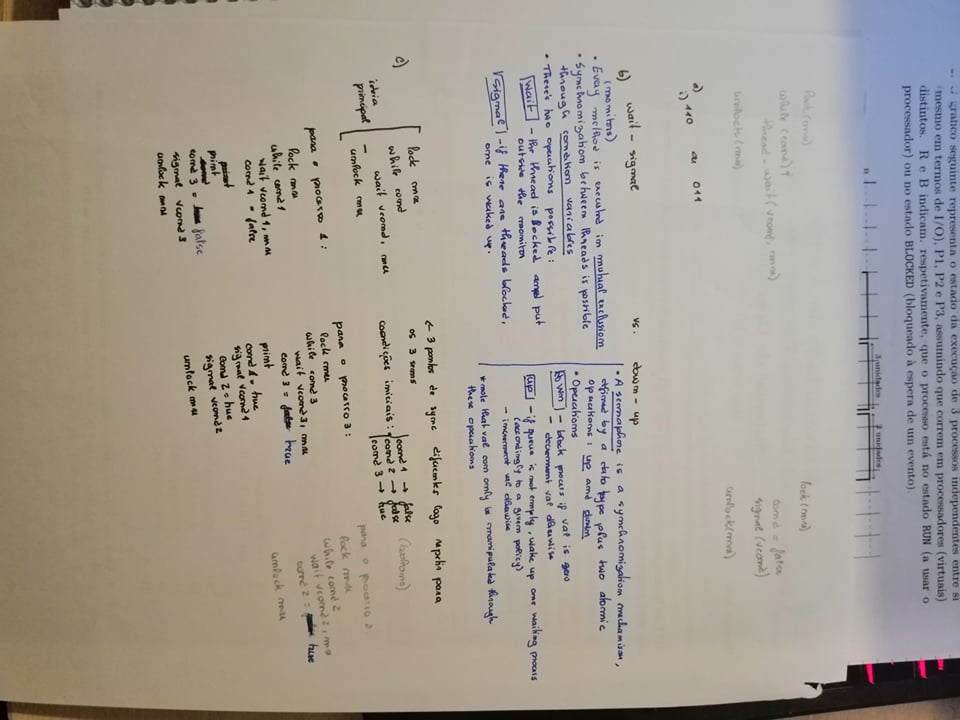 2. O gráfico seguinte representa o estado da execução de 3 processos independentes entre si
(mesmo em termos de I/O), P1, P2 e P3, assumindo que correm em processadores (virtuais)
distintos. R e B indicam, respetivamente, que o processo está no estado RUN (a usar o
processador) ou no estado BLOCKED (bloqueado à espera de um evento).
3 unidades 2 unidades
R
lock(mx)
while (cond) {
thread-wait(vcond, mx)
unlock(mx)
lock(mx)
cond = false
signal(vcond)
unlock(mx)
a)
i) 110 ou 011
b) wait - signal vs. down - up
(monitors)
• Every method is executed in mutual exclusion
• Synchronization between threads is possible
through condition variables
• There's two operations possible:
wait - the thread is blocked and put
outside the monitor
signal - if there are threads blocked,
one is waked up.
• A semaphore is a synchronization mechanism,
defined by a data type plus two atomic
operations: up and down
• Operations
down - block process if val is zero
- decrement val otherwise
up - if queue is not empty, wake up one waiting process
(accordingly to a given policy)
- increment val otherwise
* note that val can only be manipulated through
these operations
c)
ideia
principal
lock mx
while cond
wait vcond, mx
unlock mx
← 3 pontos de sync diferentes logo repetir para
os 3
condições iniciais:
cond 1 → false
cond 2 → false
cond 3 → true
para o processo 1:
lock mx
while cond1
wait vcond1, mx
cond 1 = false
print
cond 3 = false
signal vcond3
unlock mx
para o processo 3:
lock mx
while cond3
wait vcond3, mx
cond 3 = true
print
cond 1 = true
signal vcond1
cond 2 = true
signal vcond2
unlock mx
para o processo 2
lock mx
while cond2
wait vcond2, mx
cond 2 = true
unlock mx